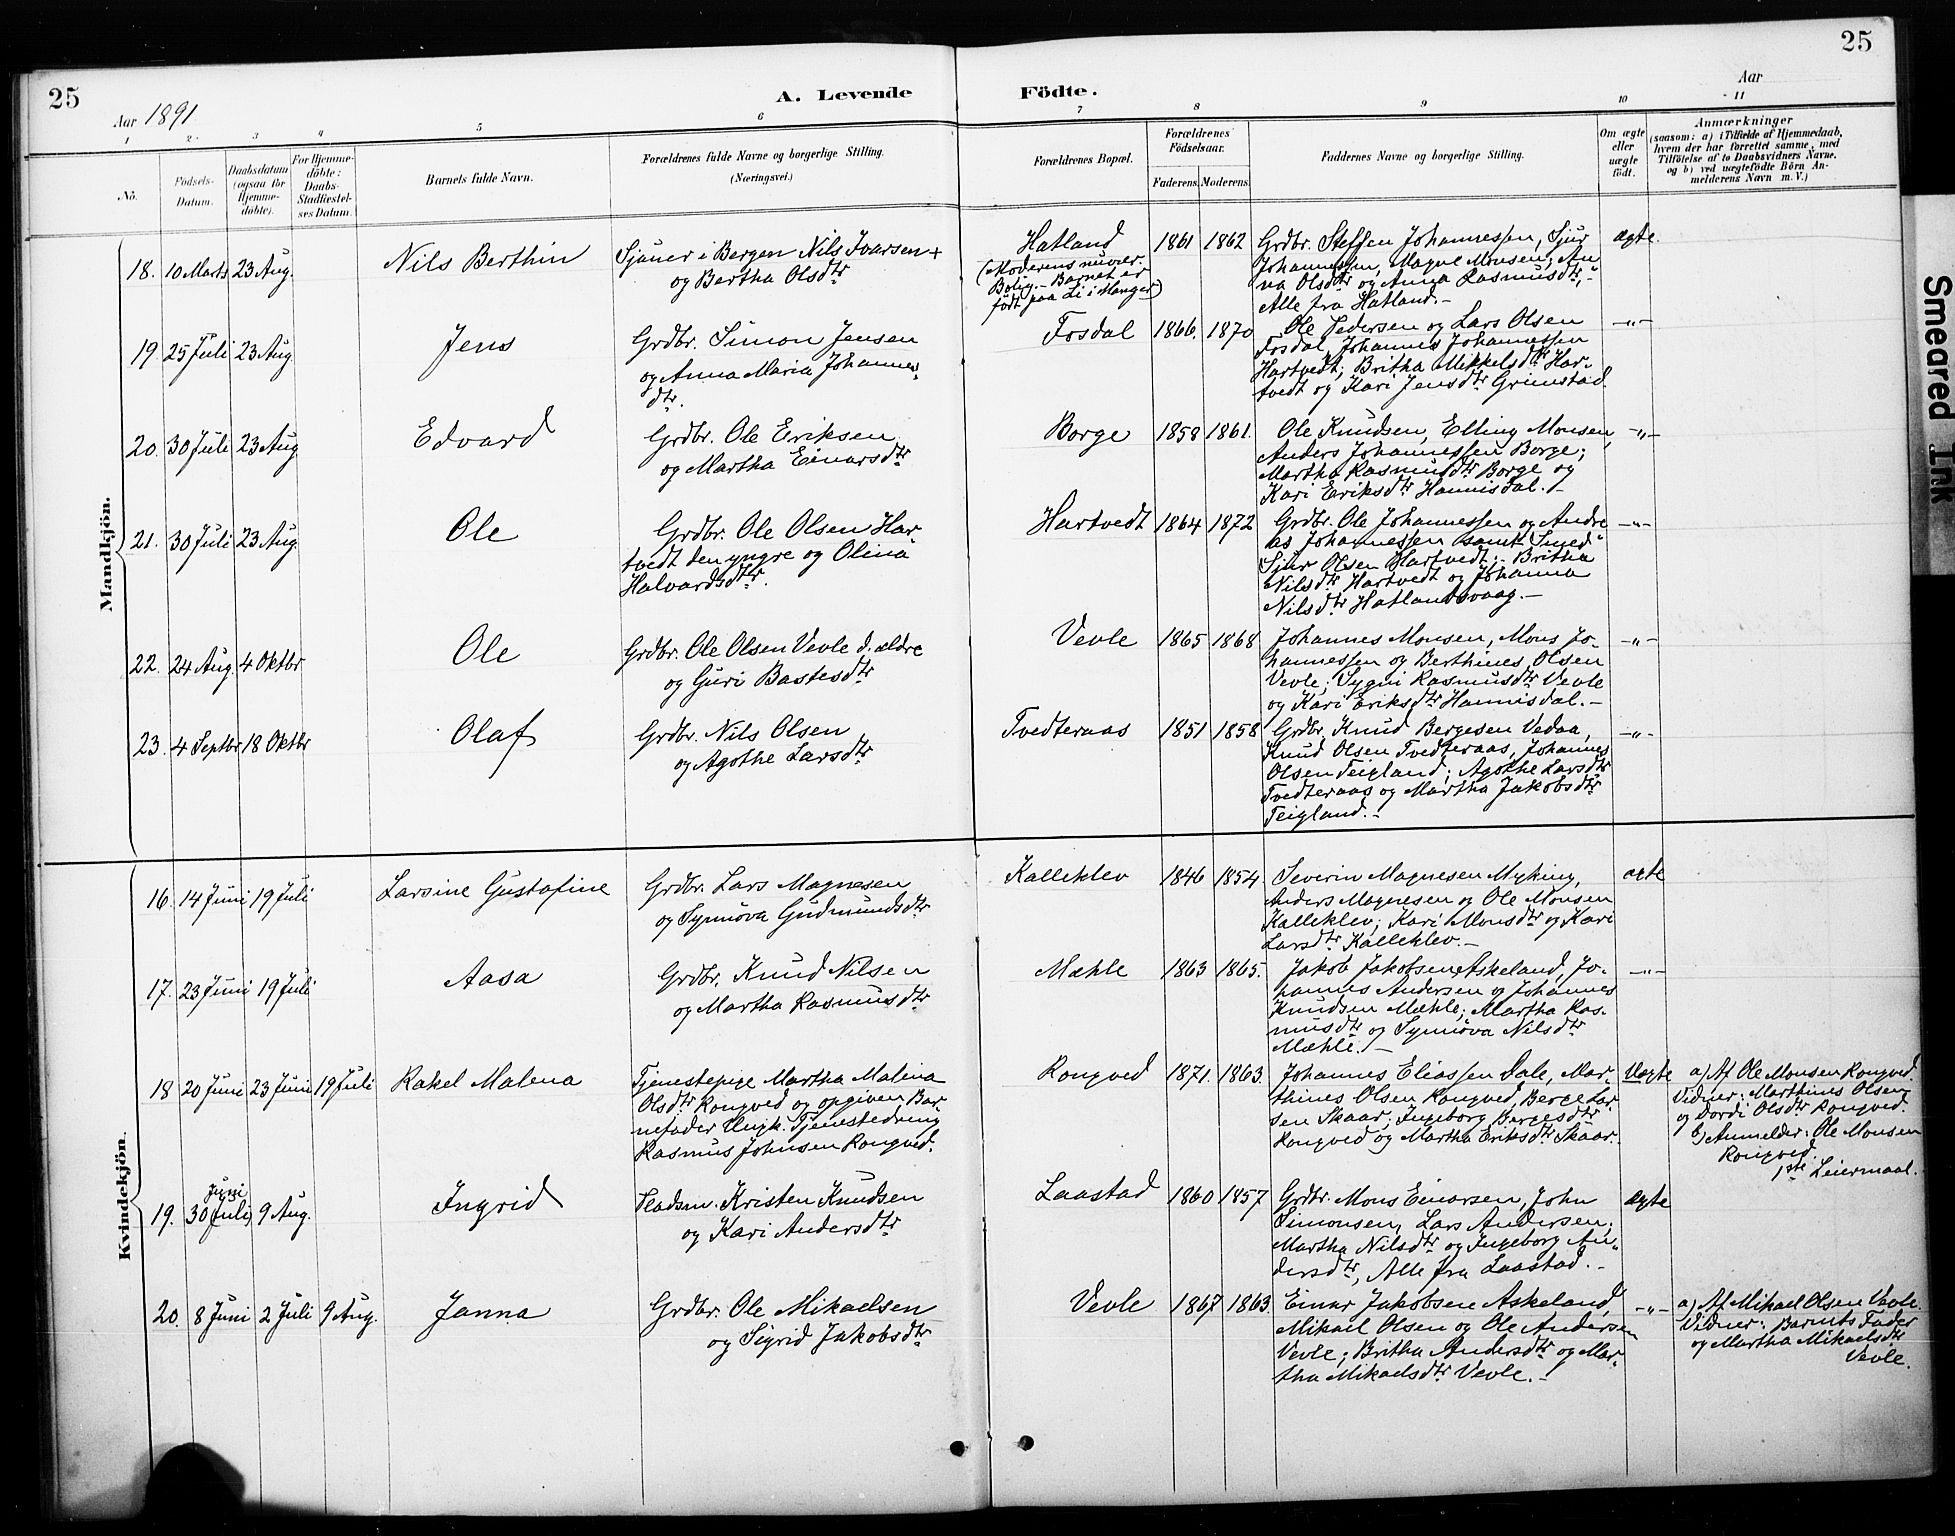 25
25
Aar 1891
A. Levende Födte.
Aar
1 2 3 4 5 6 7 8 9 10 11
No.
Födsels-
Datum.
Daabsdatum
(ogsaa för
Hjemme-
döbte).
For Hjemme-
döbte:
Daabs-
Stadfæstel-
ses Datum.
Barnets fulde Navn.
Forældrenes fulde Navne og borgerlige Stilling.
(Næringsvei.)
Forældrenes Bopæl.
Forældrenes
Födselsaar.
Faderens. Moderens.
Faddernes Navne og borgerlige Stilling.
Om ægte
eller
uægte
födt.
Anmærkninger
(saasom: a) i Tilfælde af Hjemmedaab,
hvem der har forrettet samme, med
Tilföielse af to Daabsvidners Navne,
og b) ved uægtefödte Börn An-
melderens Navn m. V.)
Mandkjön.
18. 10 Marts 23 Aug. Nils Berthin
Sjauer i Bergen Nils Ivarsen +
og Bertha Olsdtr
Hatland
(Moderens nuvær.
Bolig. - Barnet er
født paa Li i Manger)
1861 1862
Grdbr. Steffen Johannessen, Sjur
Johannessen, Magne Monsen; An-
na Olsdtr og Anna Rasmusdtr, -
Alle fra Hatland. -
ægte.
19. 25 Juli 23 Aug. Jens
Grdbr. Simon Jensen
og Anna Maria Johannes-
dtr.
Fosdal 1866. 1870
Ole Pedersen og Lars Olsen
Fosdal, Johannes Johannessen
Hartvedt; Britha Mikkelsdtr Har-
tvedt og Kari Jensdtr Grimstad.
-"-
20. 30 Juli 23 Aug Edvard
Grdbr. Ole Eriksen
og Martha Einarsdtr
Borge 1858 1861.
Ole Knudsen, Elling Monsen,
Anders Johannessen Borge;
Martha Rasmusdtr Borge og
Kari Eriksdtr Hannisdal. -
-"-
21. 30 Juli 23 Aug. Ole
Grdbr. Ole Olsen Har-
tvedt den yngre og Olina
Halvardsdtr.
Hartvedt 1864 1872
Grdbr. Ole Johannessen og Andre
as Johannessen samt Smed
Sjur Olsen Hartvedt; - Britha
Nilsdtr Hartvedt og Johanna
Nilsdtr Hatlandsvaag. -
-"-
22. 24 Aug. 4 Oktbr Ole
Grdbr. Ole Olsen Vevle d. ældre
og Guri Bastesdtr
Vevle 1865 1868
Johannes Monsen, Mons Jo-
hannessen og Berthines Olsen
Vevle; Sygni Rasmusdtr Vevle
og Kari Eriksdtr Hannisdal. -
-"-
23. 4 Septbr 18 Oktbr Olaf
Grdbr. Nils Olsen
og Agothe Larsdtr
Tvedteraas 1851 1858
Grdbr. Knud Bergesen Vedaa,
Knud Olsen Tvedteraas, Johannes
Olsen Teigland; Agothe Larsdtr
Tvedteraas og Martha Jakobsdtr
Teigland. -
-"-
Kvindekjön.
16. 14 Juni 19 Juli Larsine Gustafine
Grdbr. Lars Magnesen
og Synnøva Gudmundsdtr
Kalleklev 1846 1854
Severin Magnesen Myking,
Anders Magnesen og Ole Monsen
Kalleklev; Kari Monsdtr og Kari
Larsdtr Kalleklev. -
ægte
17. 23 Juni 19 Juli Aasa
Grdbr. Knud Nilsen
og Martha Rasmusdtr
Mæhle 1863 1865.
Jakob Jakobsen Askeland, Jo-
hannes Andersen og Johannes
Knudsen Mæhle; Martha Ras-
musdtr og Synnøva Nilsdtr
Mæhle. -
-"-
18 20 Juni 23 Juni 19 Juli Rakel Malena
Tjenestepige Martha Malena
Olsdtr Rongved og opgiven Bar-
nefader Ungk. Tjenestedreng
Rasmus Johnsen Rongved.
Rongved 1871. 1863.
Johannes Eliassen Dale, Mar-
thines Olsen Rongved, Berge Lar-
sen Skaar; Ingeborg Bergesdtr
Rongved og Martha Eriksdtr Skaar.
Uægte
a) Af Ole Monsen Rongved.
Vidner: Marthines Olsen
og Dordi Olsdtr Rongved.
b) Anmelder: Ole Monsen
Rongved.
1ste Leiermaal.
Juni
19. 30 Juli 9 Aug. Ingrid
Pladsm. Kristen Knudsen
og Kari Andersdtr
Laastad 1860 1857
Grdbr. Mons Einarsen, John
Simonsen, Lars Andersen;
Martha Nilsdtr og Ingeborg An-
dersdtr, Alle fra Laastad. -
Ægte
20. 8 Juni 2 Juli 9 Aug. Janna
Grdbr. Ole Mikaelsen
og Sigrid Jakobsdtr
Vevle 1867 1863
Einar Jakobsen Askeland,
Mikael Olsen og Ole Andersen
Vevle; Britha Andersdtr og Mar-
tha Mikaelsdtr Vevle. -
-"-
a) Af Mikael Olsen Vevle.
Vidner: Barnets Fader
og Martha Mikaelsdtr
Vevle.
Smeared Ink